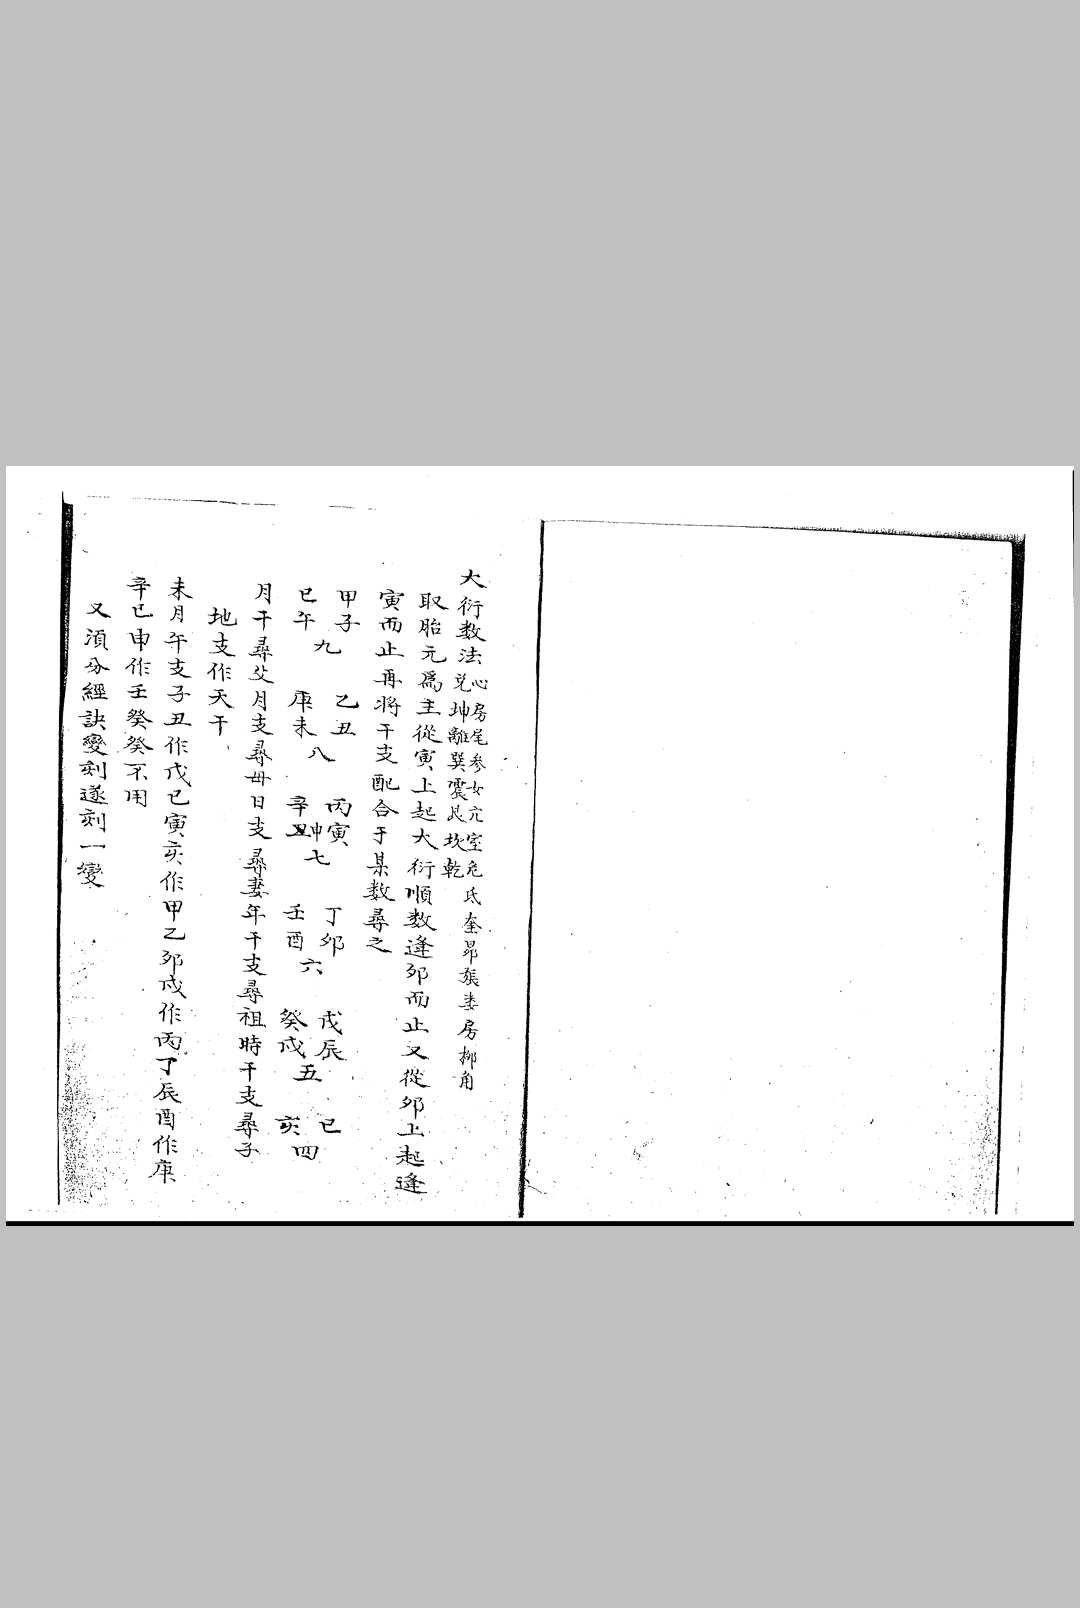 大衍数法
心房尾参女亢室危氐奎昴張婁房柳角
兑坤離巽震艮坎乾
取胎元爲主從寅上起大衍順数逢卯而止又從卯上起逢
寅而止再将干支配合于某数尋之
甲子 乙丑 丙寅 丁卯 戊辰 巳
九 八 七 六 五 四
巳午 庚未 辛丑申 壬酉 癸戌 亥
月干尋父月支尋毋日支尋妻年干支尋祖時干支尋子
地支作天干
未月午支子丑作戊己寅亥作甲乙卯戌作丙丁辰酉作庚
辛巳申作壬癸癸不用
又須分經訣變刻遂刻一變